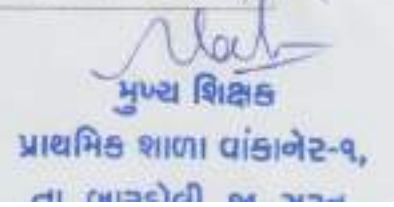 મુખ્ય શિક્ષક
પ્રાથમિક શાળા વાંકાનેર-૧,
તા બારડોલી જી સુરત